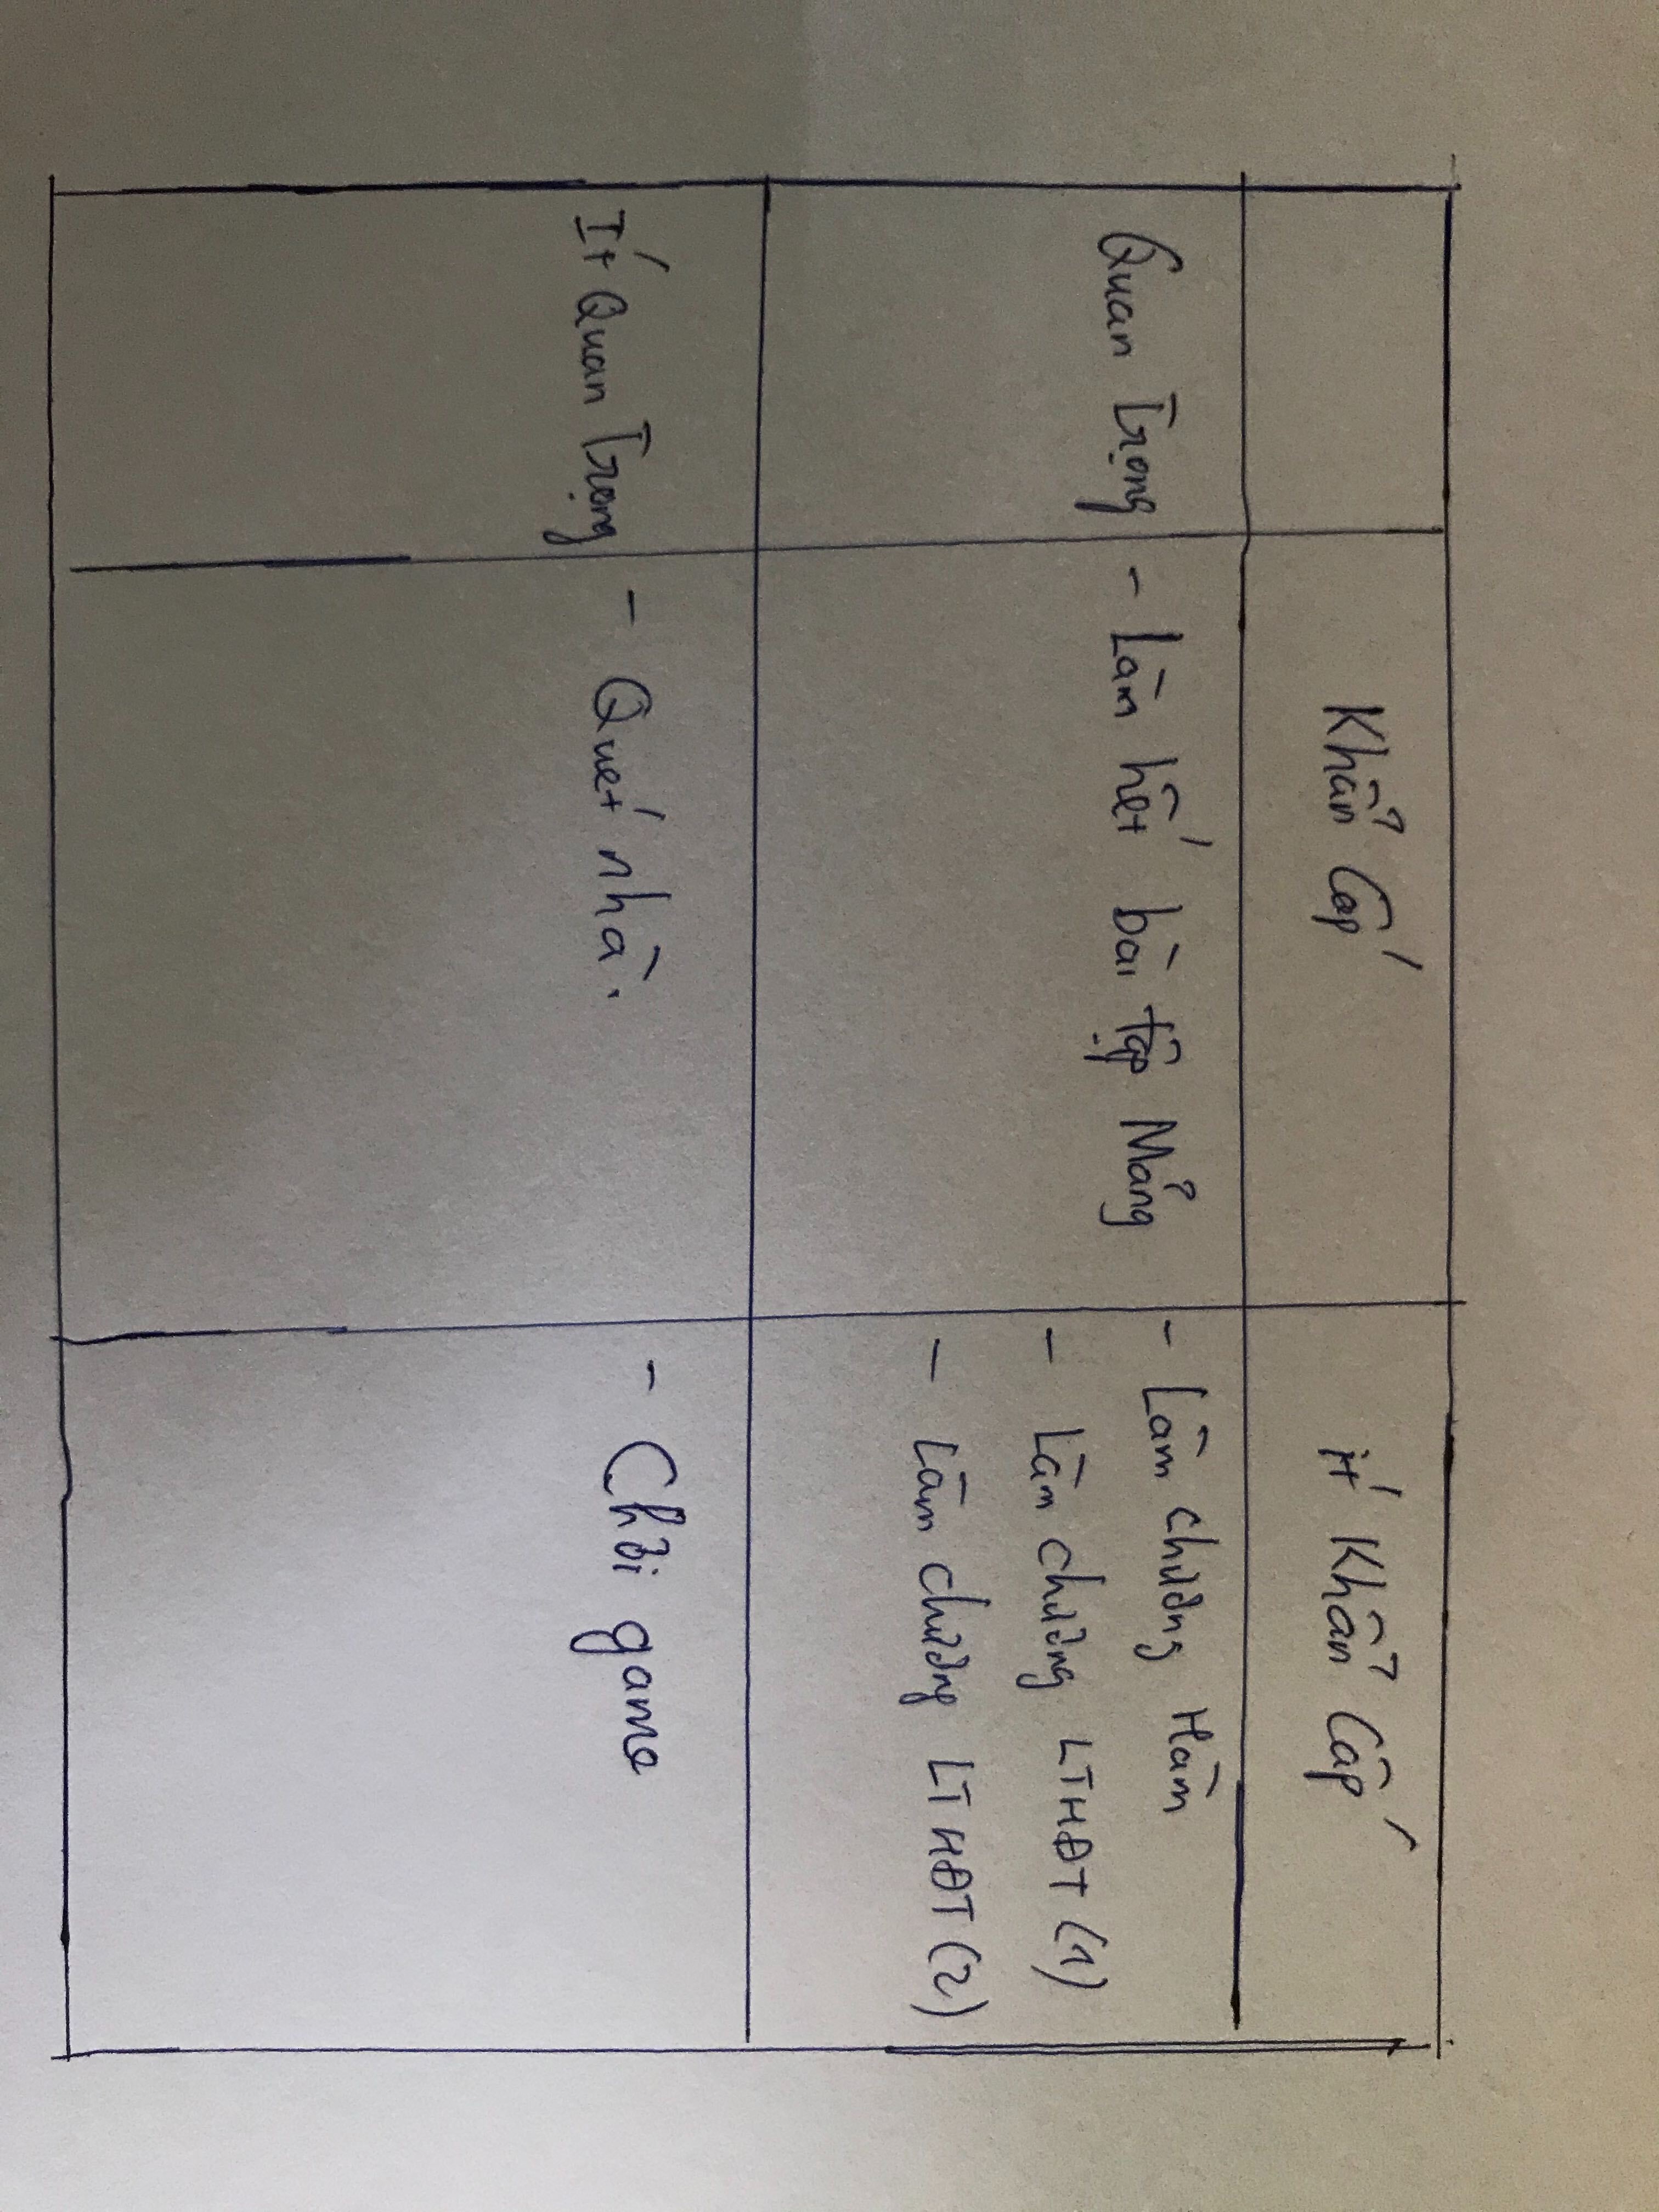 Khẩn Cấp
ít Khẩn Cấp
Quan Trọng
- Làm hết bài tập Mảng
- Làm chương Hàm
- Làm chương LTHĐT (1)
- Làm chương LTHĐT (2)
Ít Quan Trọng
- Quét nhà.
- Chơi game